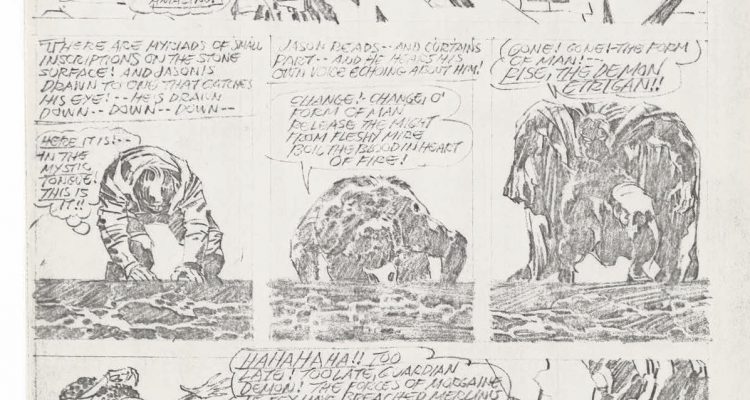 AMAZING!
THERE ARE MYRIADS OF SMALL
INSCRIPTIONS ON THE STONE
SURFACE! AND JASON IS
DRAWN TO ONE THAT CATCHES
HIS EYE! -- HE'S DRAWN
DOWN -- DOWN -- DOWN --
HERE IT IS! --
IN THE
MYSTIC
TONGUE!
THIS IS
IT!!
JASON READS -- AND CURTAINS
PART -- AND HE HEARS HIS
OWN VOICE ECHOING ABOUT HIM!
CHANGE! - CHANGE, O'
FORM OF MAN
RELEASE THE MIGHT
FROM FLESHY MIRE
BOIL THE BLOOD IN HEART
OF FIRE!
GONE! GONE! - THE FORM
OF MAN! --
RISE, THE DEMON
ETRIGAN!!
HAHAHAHA!! TOO
LATE! TOO LATE, GUARDIAN
DEMON! THE FORCES OF MORGAINE
BREACHED MERLIN'S